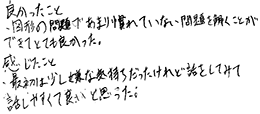 良かったこと
・図形の問題であまり慣れていない問題を解くことが
できてとても良かった。
感じたこと
・最初は少し嫌な気持ちだったけれど話をしてみて
話しやすくて良いと思った。